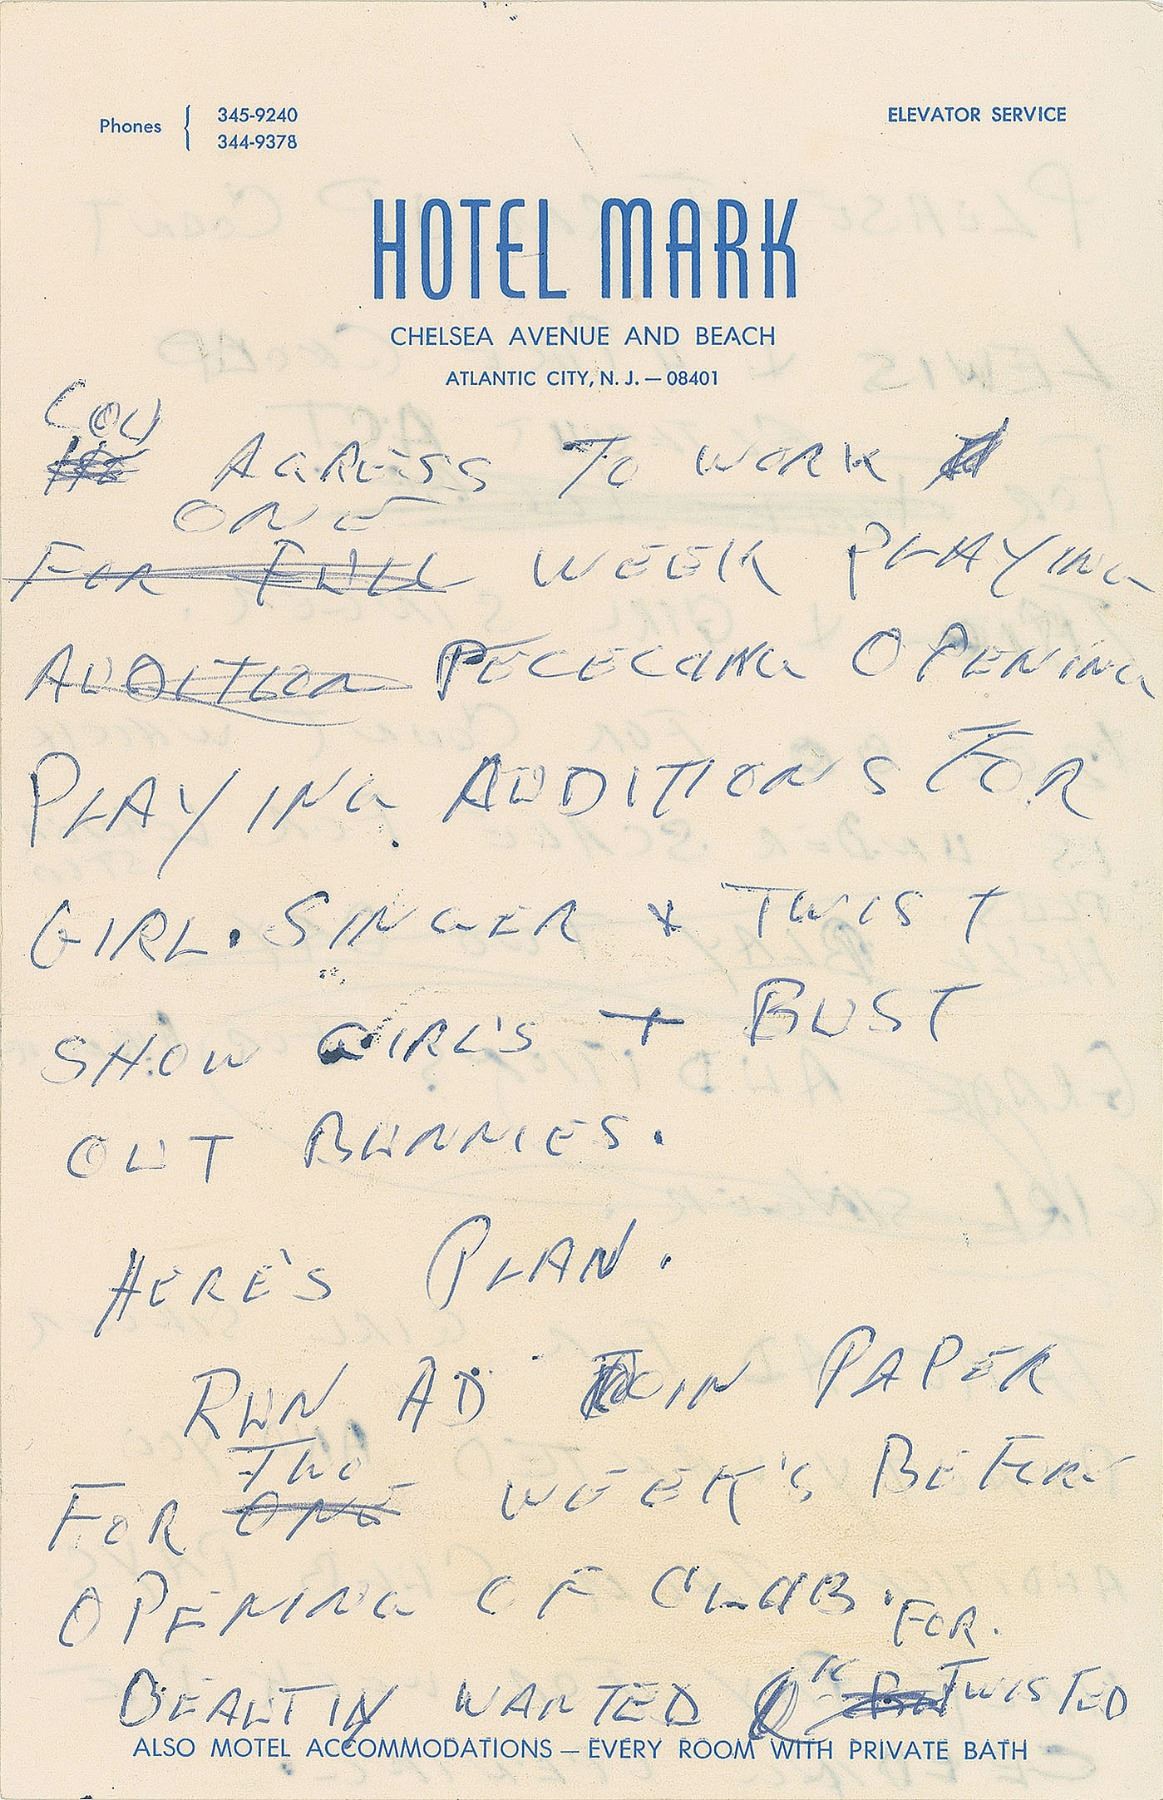 Phones { 345-9240
344-9378
ELEVATOR SERVICE
HOTEL MARK
CHELSEA AVENUE AND BEACH
ATLANTIC CITY, N. J. — 08401
COU
AGREESS TO WORK
ONE
FOR FULL WEEK PLAYING
AUDITION PECECDING OPENING
PLAYING AUDITIONS FOR
GIRL. SINGER + TWIST
SHOW GIRL'S + BUST
OUT BUNNIES.
HERE'S PLAN.
RUN AD IN PAPER
TWO
FOR ONE WEEK'S BEFORE
OPENING OF CLUB. FOR.
WANTED TWISTED
ALSO MOTEL ACCOMMODATIONS — EVERY ROOM WITH PRIVATE BATH